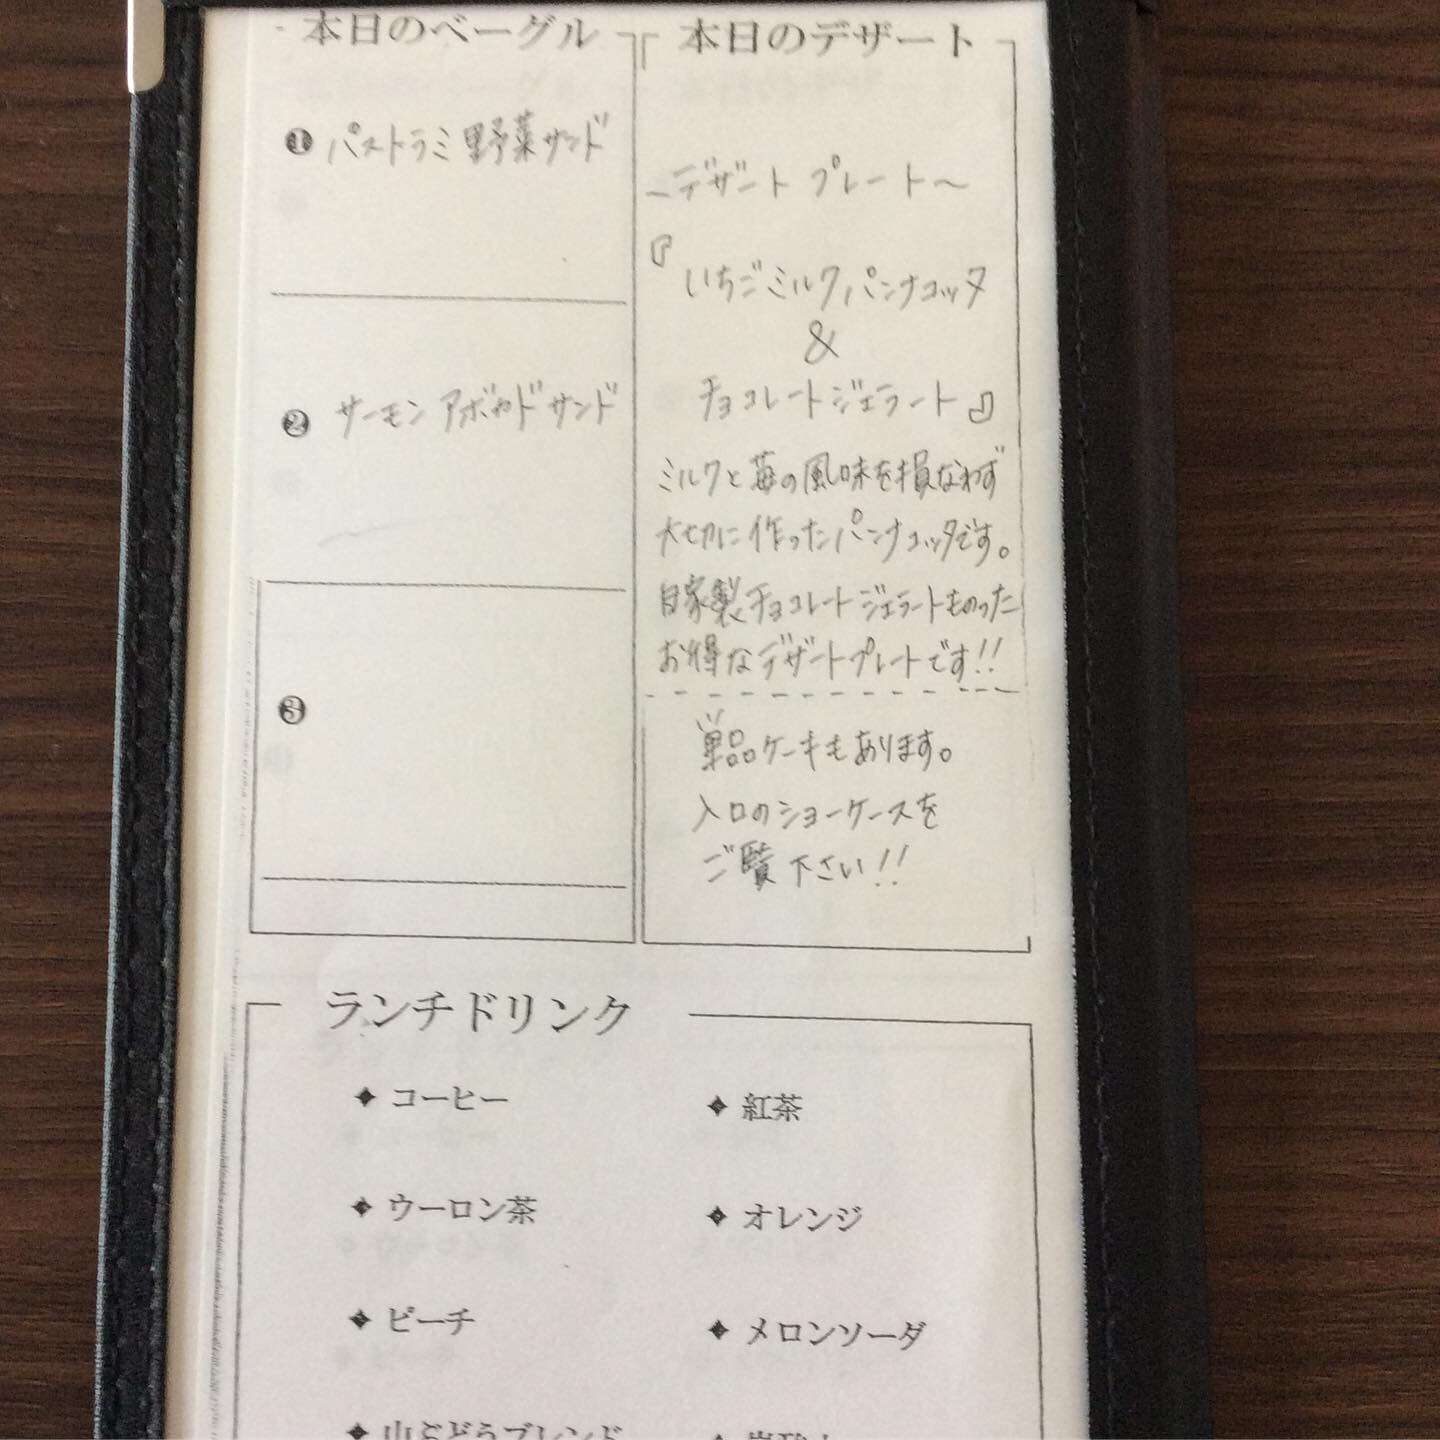 本日のベーグル
❶ パストラミ野菜サンド
❷ サーモンアボカドサンド
❸
本日のデザート
~デザートプレート~
『いちごミルクパンナコッタ
&
チョコレートジェラート』
ミルクと苺の風味を損なわず
大切に作ったパンナコッタです。
自家製チョコレートジェラートものった
お得なデザートプレートです!!
単品ケーキもあります。
入口のショーケースを
ご覧下さい!!
ランチドリンク
コーヒー
紅茶
ウーロン茶
オレンジ
ピーチ
メロンソーダ
山ぶどうブレンド